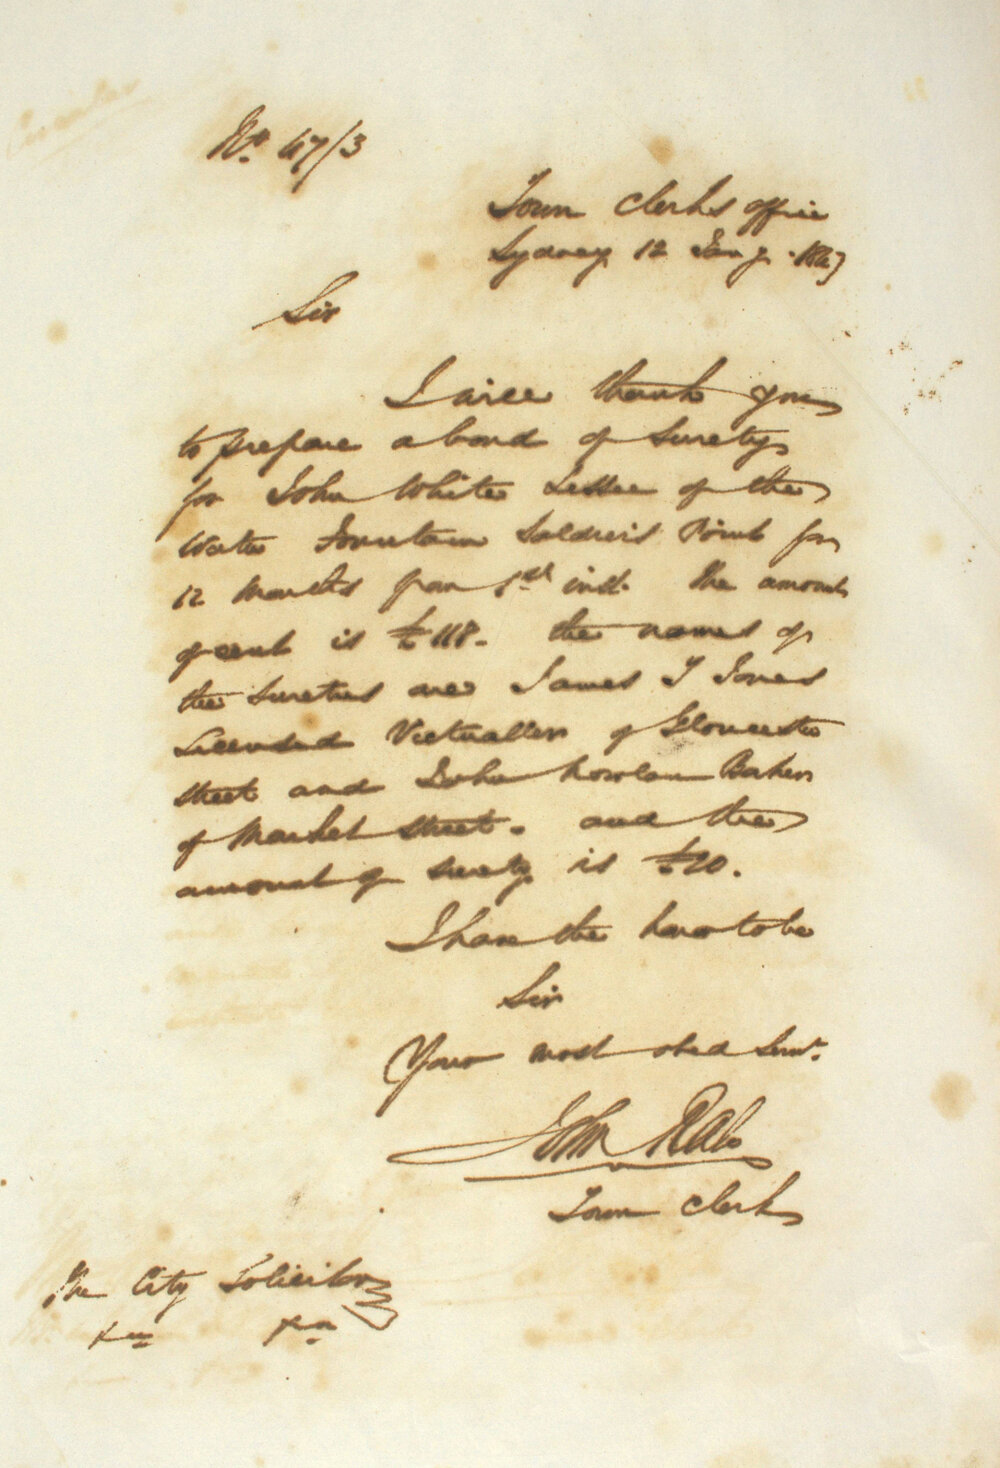 No. 47/3
Town Clerks office
Sydney 12 Jany. 1847
Sir
I will thank you
to prepare a bond of Surety
for John White Lessee of the
Water Fountain Soldiers Point for
12 Months from 1st inst. The amount
of rent is £118. the names of
the Sureties are James T Jones
Licensed Victualler of Gloucester
Street and John Bakers
of Market Street. and the
amount of surety is £20.
I have the honor to be
Sir
Your most obed Servt.
John Rae
Town Clerk
The City Solicitor